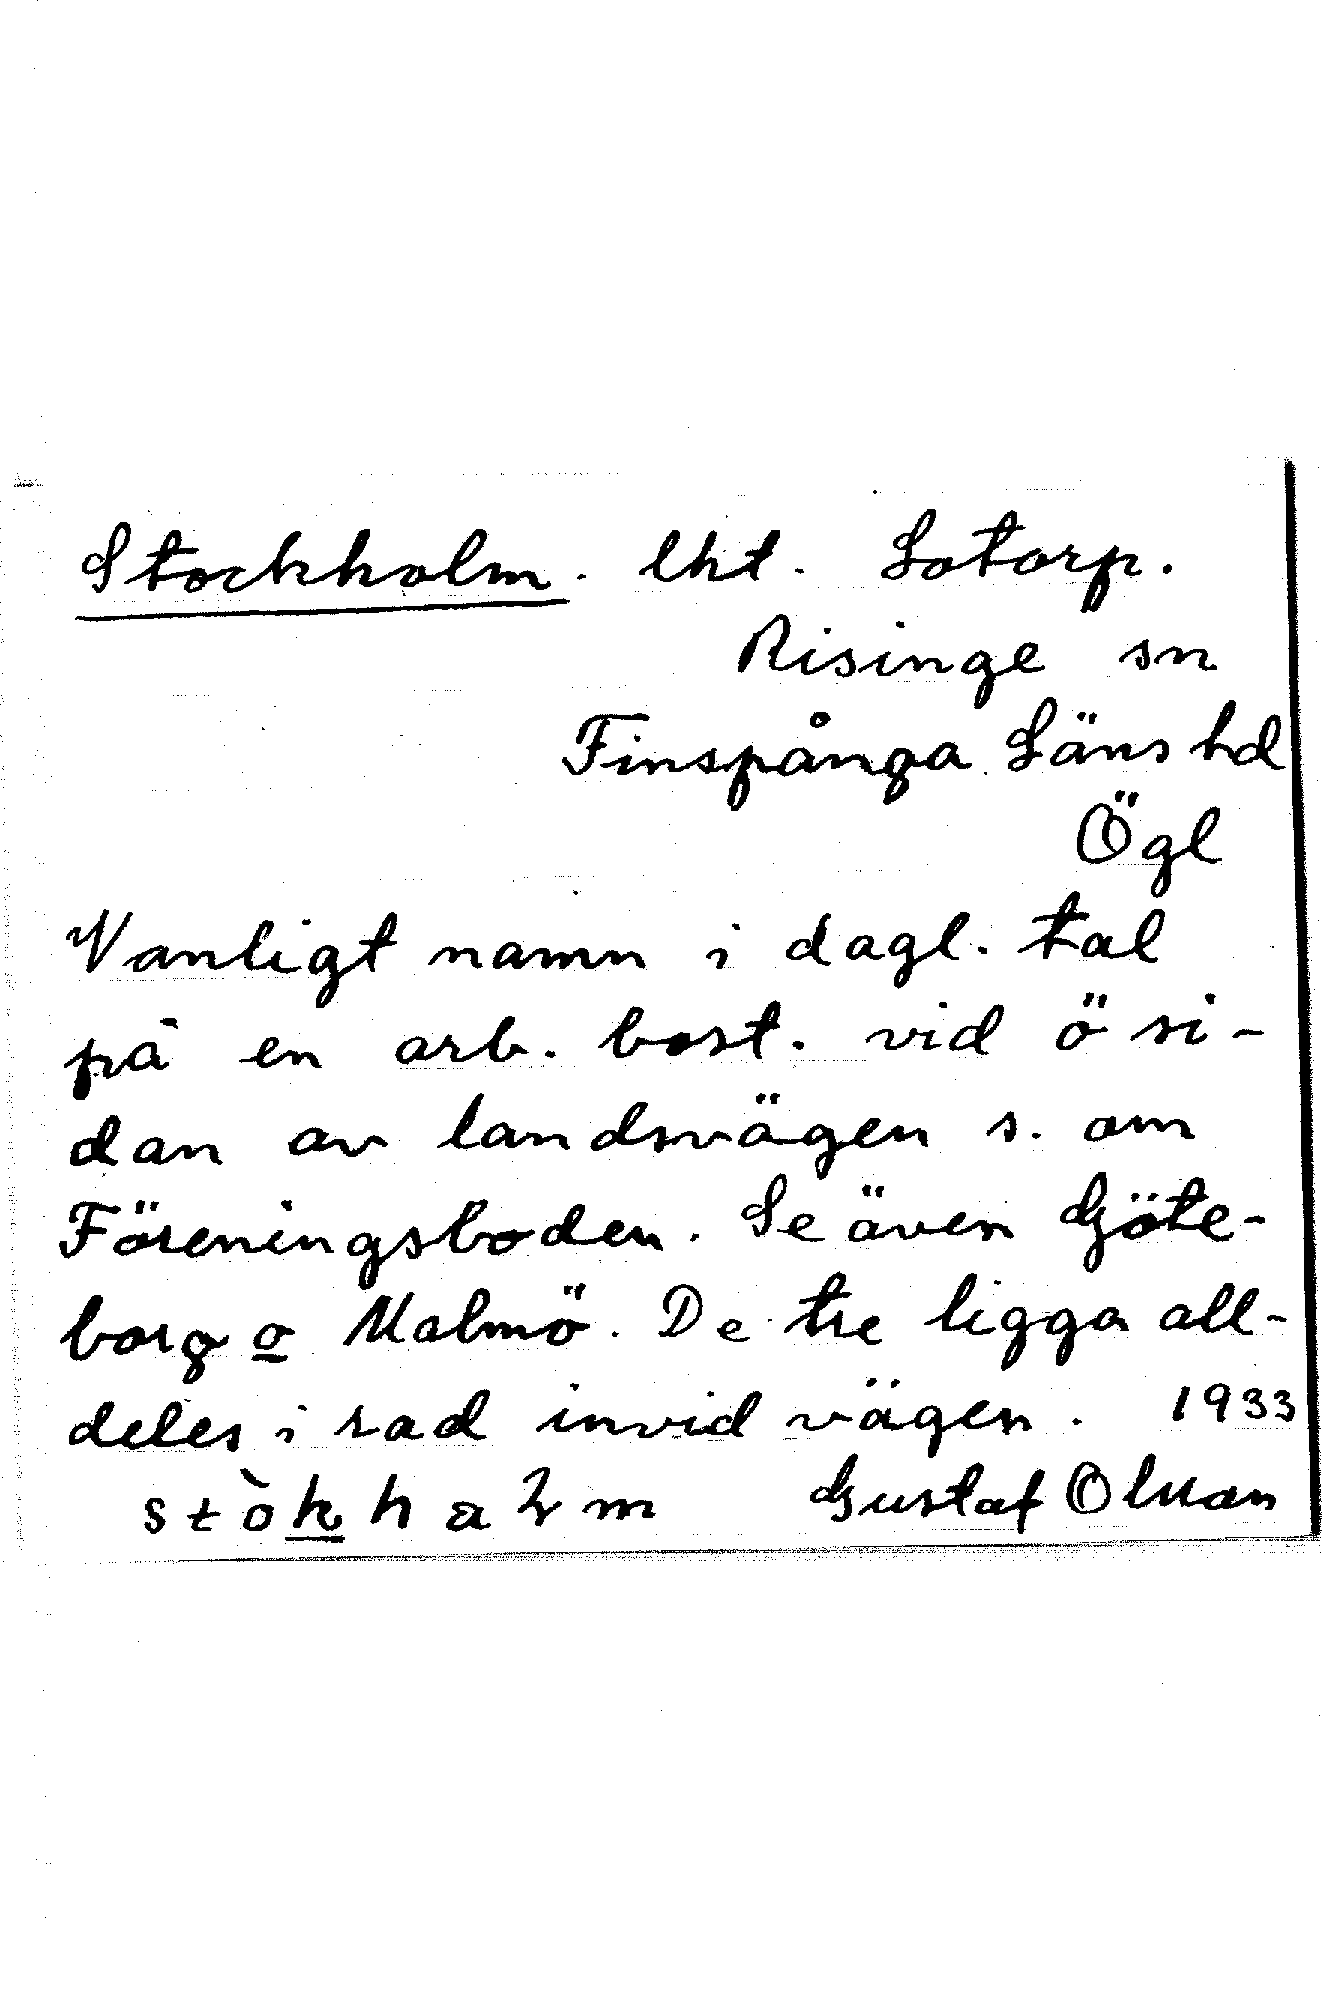 Stockholm. lht. Lotorp.
Risinge sn
Finspånga Läns hd
Ögl
Vanligt namn i dagl. tal
på en arb. bost. vid ö si-
dan av landsvägen s. om
Föreningsboden. Se även Göte-
borg o Malmö. De tre ligga all-
deles i rad invid vägen. 1933
Gustaf Olsson